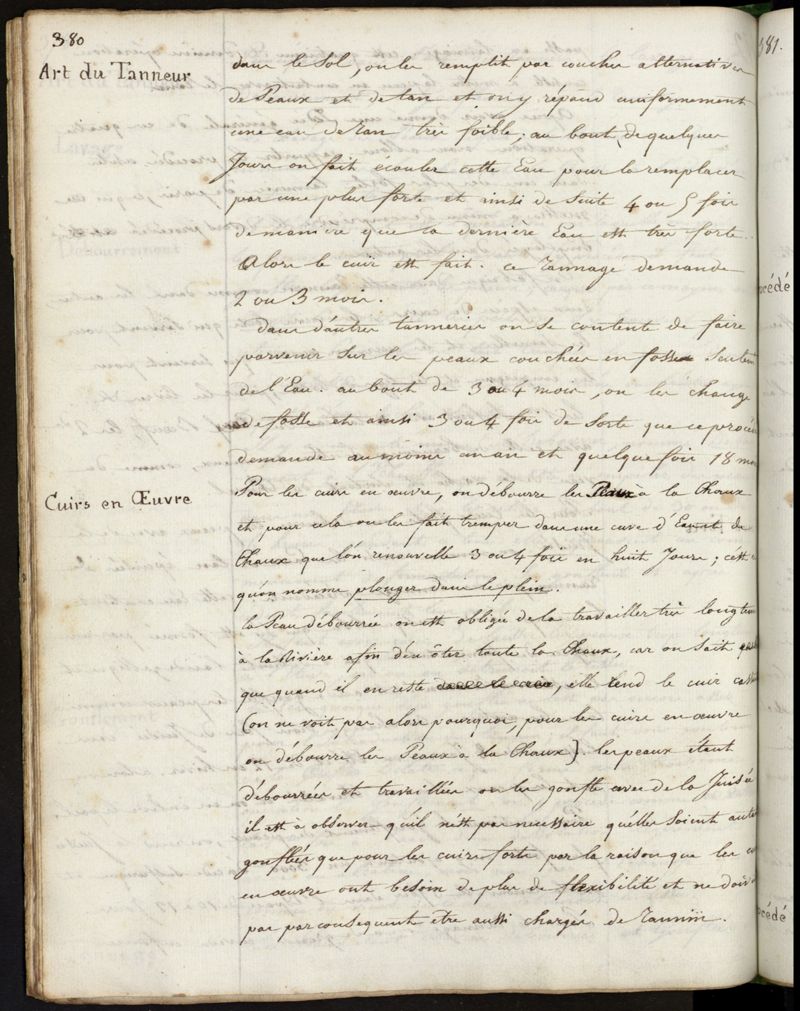 380
381.
Art du Tanneur
dans le Sol, on les remplit par couches alternatives
de Peaux et de tan et on y répand uniformement
une eau de tan très foible; au bout de quelques
Jours on fait écouler cette Eau pour la remplacer
par une plus forte et ainsi de Suite 4 ou 5 fois
de manière que la dernière Eau est très forte.
Alors le cuir est fait. ce Tannage demande
2 ou 3 mois.
dans d'autres tanneries on se contente de faire
parvenir Sur les peaux couchées en fosses Seulem
de l'Eau. au bout de 3 ou 4 mois, on les change
de fosse et ainsi 3 ou 4 fois de Sorte que ce procé
demande au moins un an et quelque fois 18 mo
Cuirs en Œuvre
Pour les cuirs en œuvre, on débourre les Peaux à la Chaux
et pour cela on les fait tremper dans une cuve d'Eau et de
Chaux que l'on renouvelle 3 ou 4 fois en huit Jours; c'est
qu'on nomme plonger dans le plein.
la Peau débourrée on est obligée de la travailler très longtem
à la Rivière afin d'en ôter toute la Chaux, car on Sait
que quand il en reste dans le cuir, elle rend le cuir cass
(on ne voit pas alors pourquoi, pour les cuirs en œuvre
on débourre les Peaux à la Chaux). les peaux étant
débourrées et travaillées on les gonfle avec de la Jusée
il est à observer qu'il n'est pas necessaire qu'elles Soient aute
gonflées que pour les cuirs forts par la raison que les cu
en œuvre ont besoin de plus de flexibilité et ne doive
pas par consequent etre aussi chargés de Tannin.
océdé
océdé